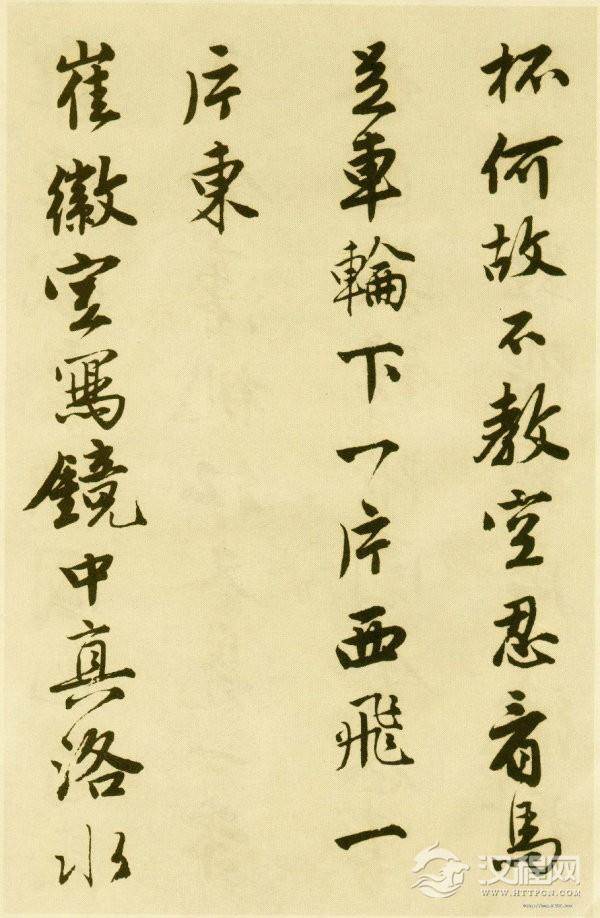 杯何故不教空忍看馬
足車輪下一片西飛一
片東
崔徽空寫鏡中真洛水
汉程网
WWW.HTTPCN.COM